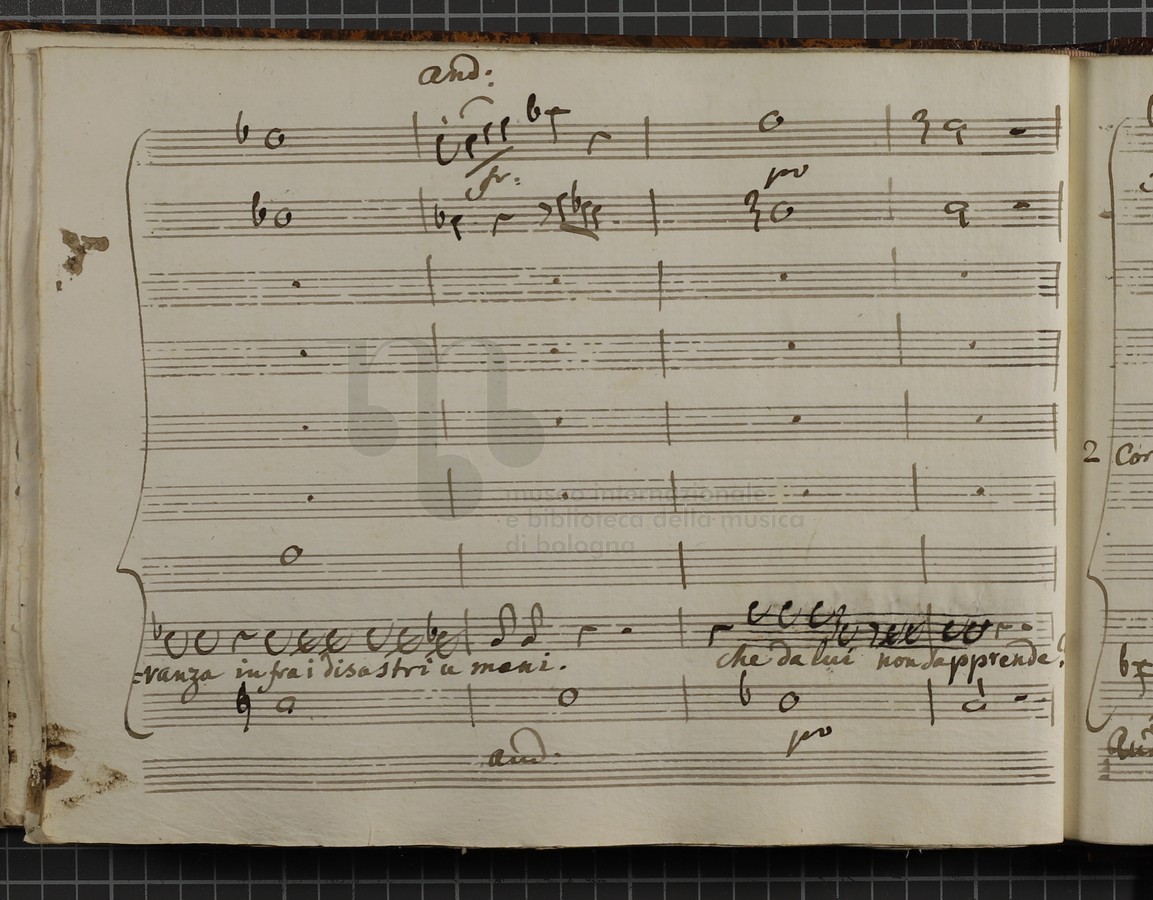 and:
fr:
po
museo internazionale
e biblioteca della musica
di bologna
2 Cor
-ranza in fra i disastri u mani. che da lui non s'apprende?
po
and: